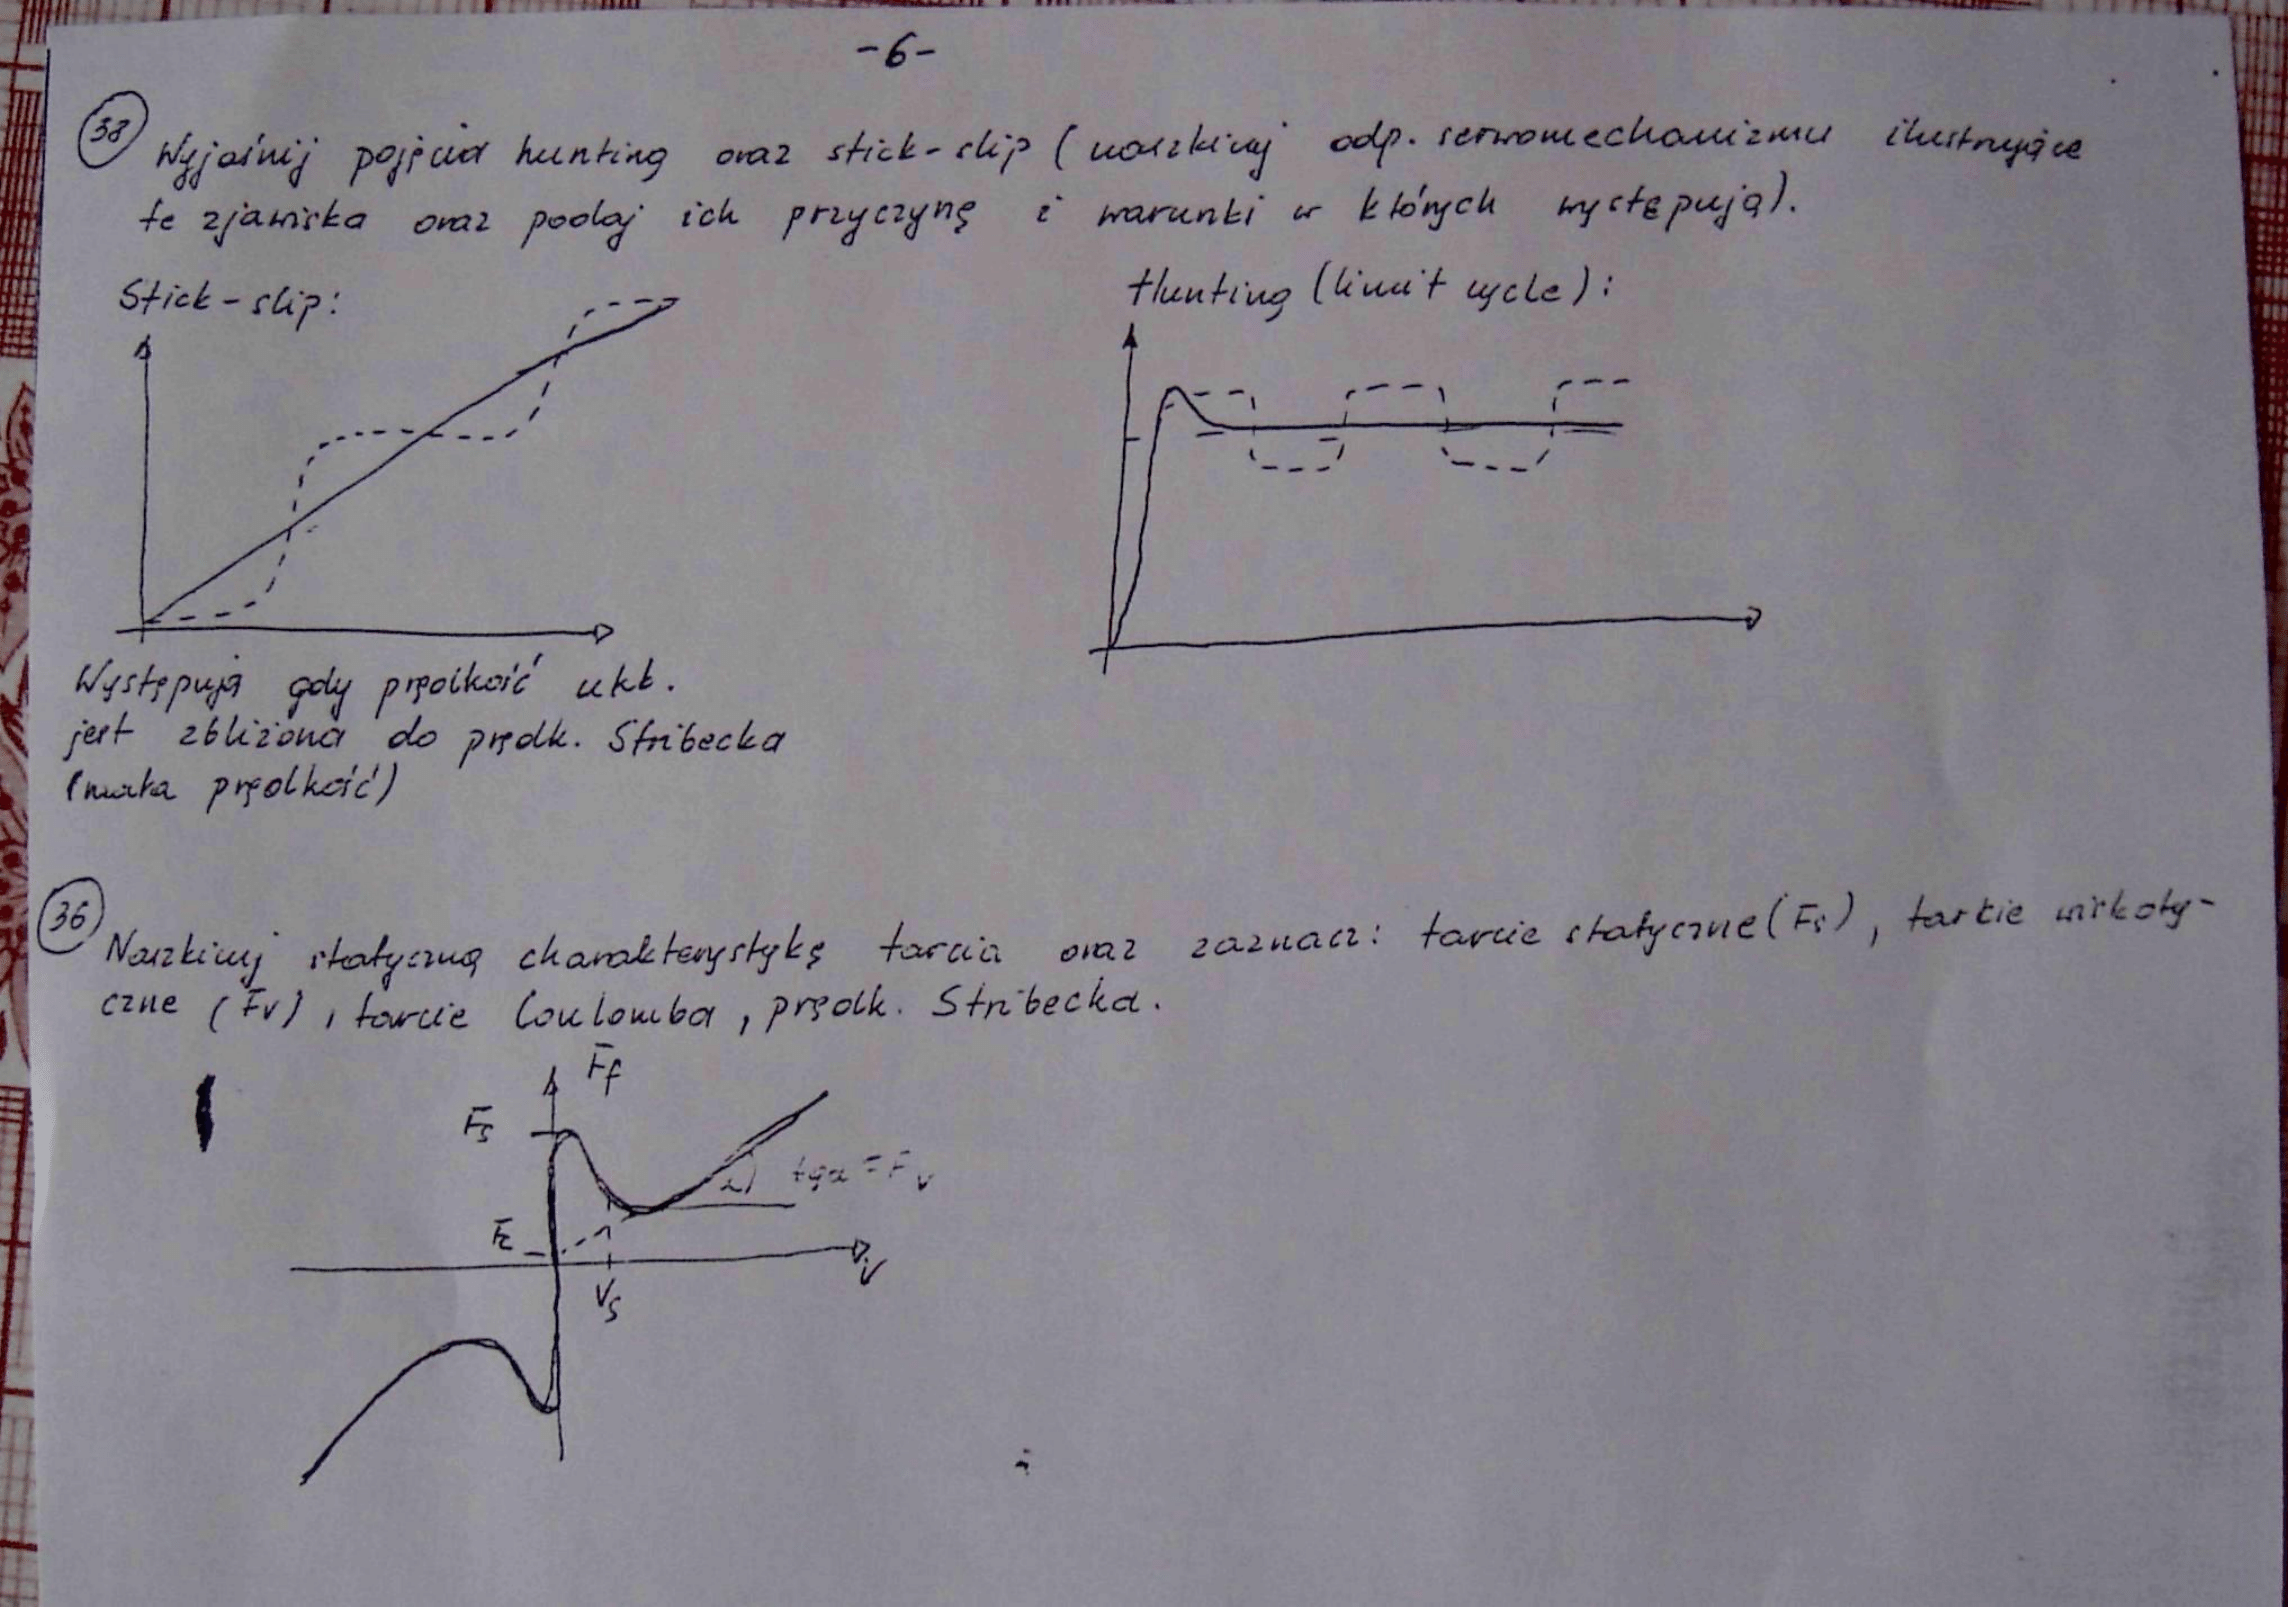 -6-
38 Wyjaśnij pojęcia hunting oraz stick-slip (naszkicuj odp. serwomechanizmu ilustrujące
te zjawiska oraz podaj ich przyczynę i warunki w których występują).
Stick-slip:
Hunting (limit cycle):
Występują gdy prędkość ukł.
jest zbliżona do prędk. Stribecka
(mała prędkość)
36 Naszkicuj statyczną charakterystykę tarcia oraz zaznacz: tarcie statyczne (Fs), tarcie wiskoty-
czne (Fv), tarcie Coulomba, prędk. Stribecka.
Ff
Fs
α
tgα = Fv
Fc
v
Vs